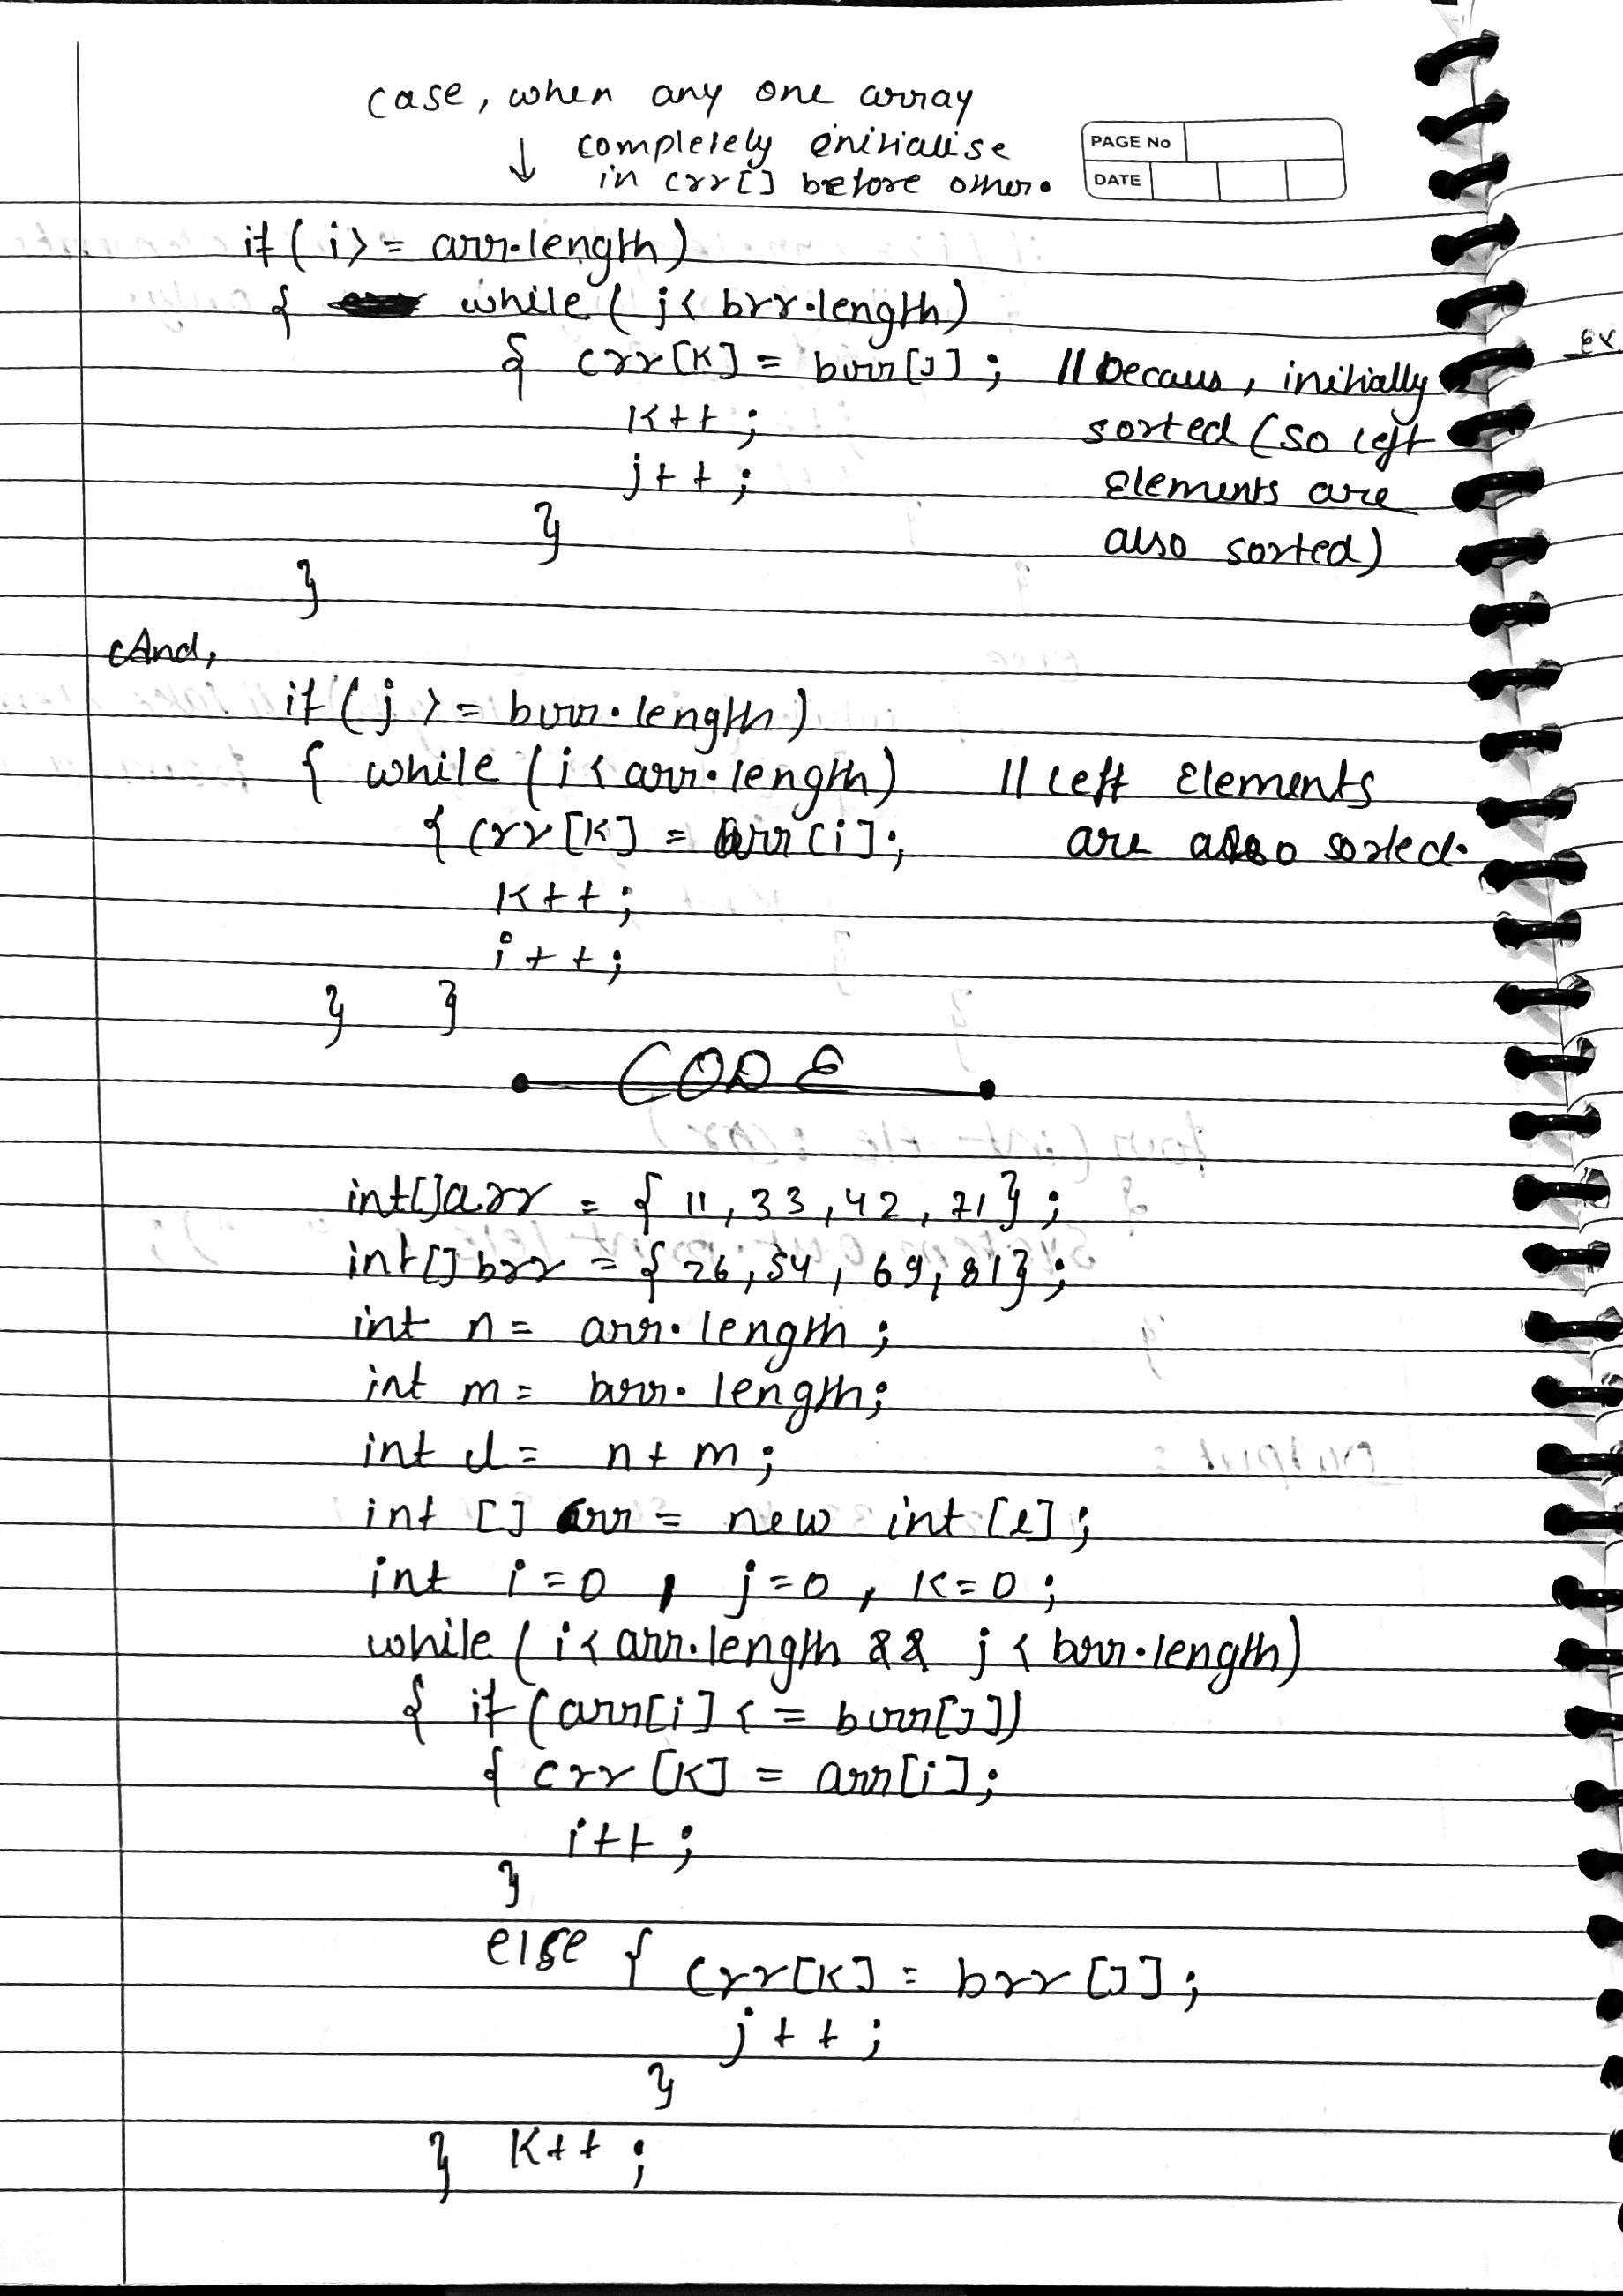 case, when any one array
↓ completely initialise
in crr[] before other.
PAGE No
DATE
if ( i >= arr.length)
{ while ( j < brr.length)
{ crr[K] = brr[J] ; // becaus, initially
K++ ; sorted (so left
j++ ; elements are
} also sorted)
}
And,
if ( j >= brr.length )
{ while ( i < arr.length) // left Elements
{ crr [K] = arr [i] ; are also sorted.
K++ ;
i++ ;
} }
CODE
int[]arr = { 11, 33, 42, 71} ;
int[] brr = { 26, 54, 69, 81} ;
int n = arr.length ;
int m = brr.length ;
int l = n + m ;
int [] crr = new int [l] ;
int i = 0 , j = 0 , K = 0 ;
while ( i < arr.length && j < brr.length)
{ if (arr[i] <= brr[J])
{ crr [K] = arr[i] ;
i++ ;
}
else { crr[K] = brr [J] ;
j++ ;
}
} K++ ;